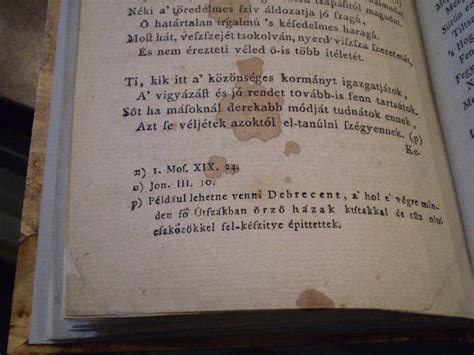 Néki a' töredelmes sziv áldozatja jó szagú,
Ó határtalan irgalmú 's késedelmes haragú.
Most hát, veszszejét tsokolván, nyerd viszsza szeretetét,
És nem érezteti véled ő-is több itéletét.
Ti, kik itt a' közönséges kormányt igazgatjátok,
A' vigyázást és jó rendet tovább-is fenn tartsátok,
Sőt ha másoknál derekabb módját tudnátok ennek,
Azt se véljétek azoktól el-tanúlni szégyennek. (p)
Ke-
n) 1. Mos. XIX. 24.
o) Jon. III. 10.
p) Például lehetne venni Debrecent, a' hol e' végre min-
den fő Útszákban őrző házak kustakkal és tűz oltó
eszközökkel fel-készítve épittettek.